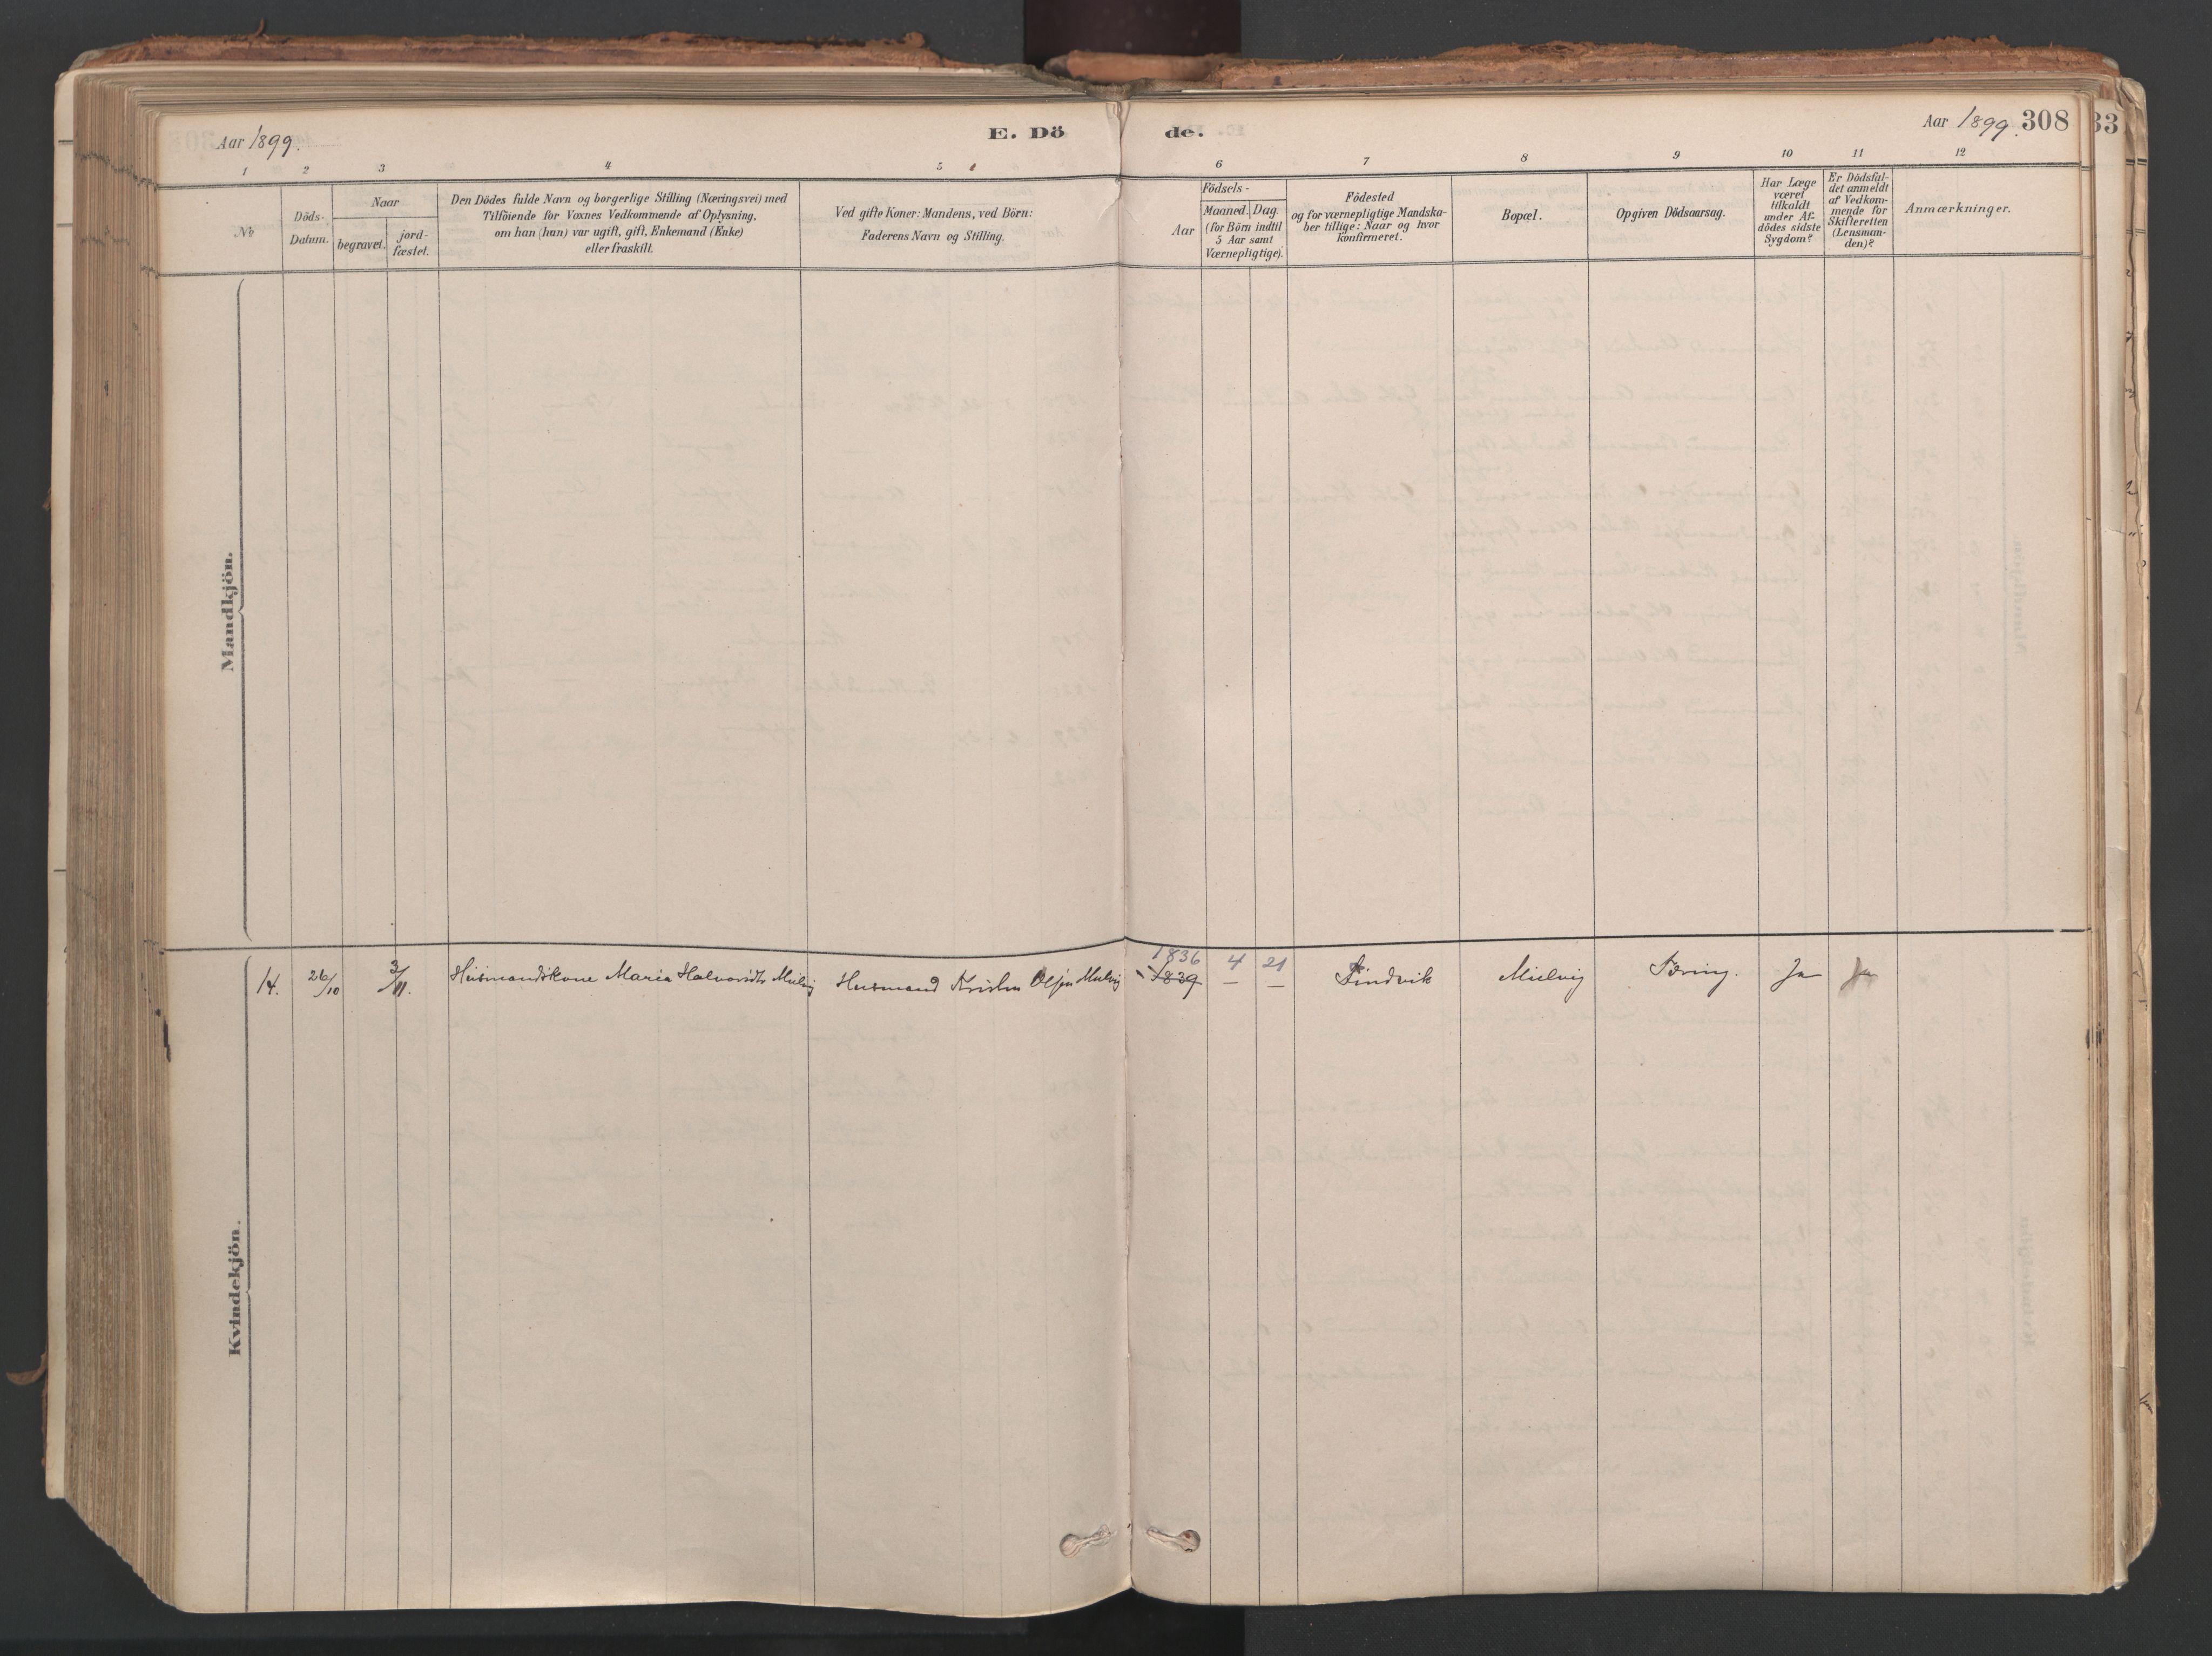 Aar 1899.
E. Dö de.
Aar 1899.
308
33
1 2 3 4 5 6 7 8 9 10 11 12
No
Döds-
Datum.
Naar
begravet.
jord-
fæstet.
Den Dödes fulde Navn og borgerlige Stilling (Næringsvei) med
Tilföiende for Voxnes Vedkommende af Oplysning,
om han (hun) var ugift, gift, Enkemand (Enke)
eller fraskilt.
Ved gifte Koner: Mandens, ved Börn:
Faderens Navn og Stilling.
Födsels-
Aar
Maaned.
Dag
(for Börn indtil
5 Aar samt
Værnepligtige).
Födested
og for værnepligtige Mandska-
ber tillige: Naar og hvor
konfirmeret.
Bopæl.
Opgiven Dödsaarsag.
Har Læge
været
tilkaldt
under Af-
dödes sidste
Sygdom?
Er Dödsfal-
det anmeldt
af Vedkom-
mende for
Skifteretten
(Lensman-
den)?
Anmærkninger.
Mandkjön.
Kvindekjön.
1836 4 21
14. 26/10 3/11. Husmandskone Maria Halvorsdtr Mielvig Husmand Kristen Olsen Mielvig 1839 — — Sindvik Mielvig Tæring. Ja Ja